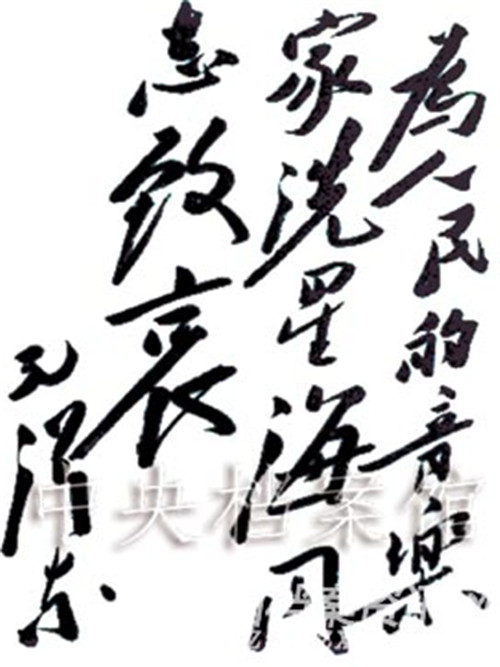 為人民的音樂
家洗星海同
志致哀
毛泽东
中央档案馆